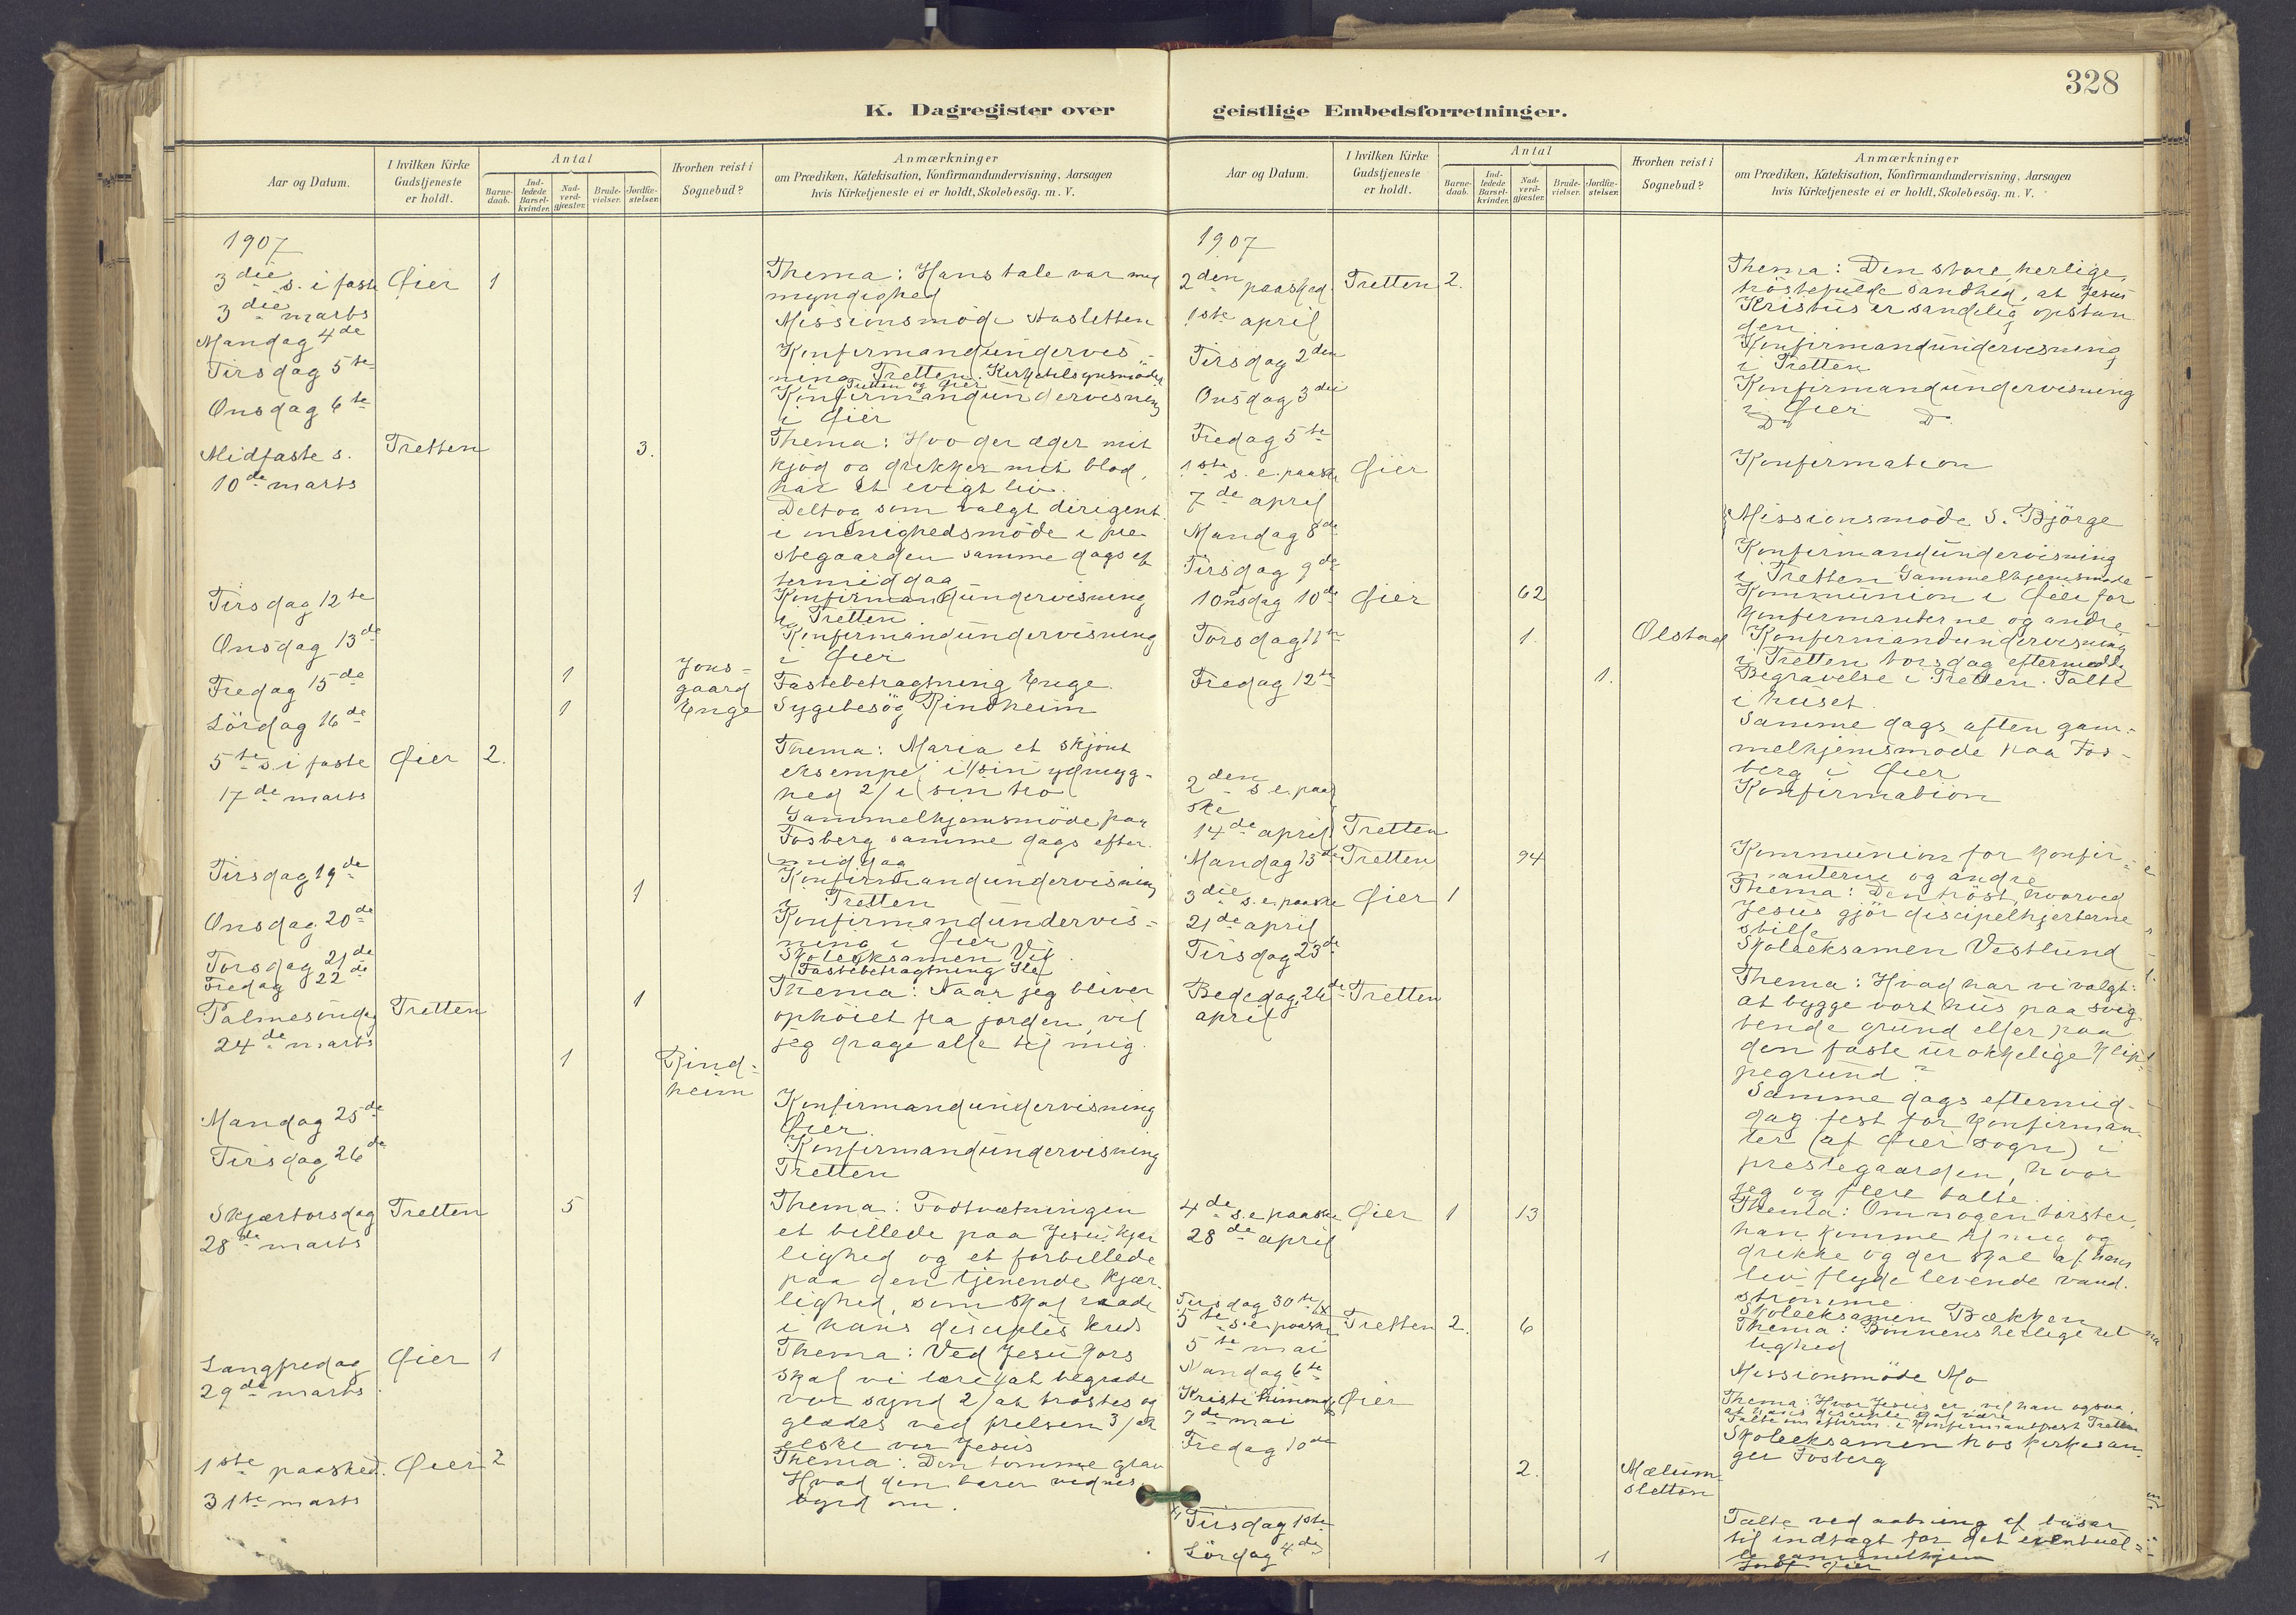 328
K. Dagregister over geistlige Embedsforretninger.
Aar og Datum.
I hvilken Kirke Gudstjeneste er holdt.
Antal
Barnedaab.
Indledede Barselkvinder.
Nadverdgjæster.
Brudevielser.
Jordfæstelser.
Hvorhen reist i Sognebud?
Anmærkninger
om Prædiken, Katekisation, Konfirmandundervisning, Aarsagen
hvis Kirketjeneste ei er holdt, Skolebesög. m. V.
1907
3die s. i faste Øier 1 Thema: Hans tale var med
3die marts myndighed
Mandag 4de Missionsmöde Aasletten
Tirsdag 5te Konfirmandundervis-
ning Tretten. Kirketilsynsmöder
Tretten og Øier
Onsdag 6te Konfirmandundervisning
i Øier
Midfaste s. Tretten 3. Thema: Hvo der æder mit
10de marts kjød og drikker mit blod,
har et evigt liv.
Deltog som valgt dirigent
i menighedsmöde i pre-
stegaarden samme dags ef-
termiddag
Tirsdag 12te Konfirmandundervisning
i Tretten
Onsdag 13de Konfirmandundervisning
i Øier
Fredag 15de 1 Jons-
gaard Fastebetragtning Enge.
Lördag 16de 1 Enge Sygebesög Rindheim
5te s. i faste Øier 2. Thema: Maria et skjönt
17de marts eksempel i 1/ sin ydmyg-
hed 2/ i sin tro
Gammelhjemsmöde paa
Fosberg samme dags efter-
middag
Tirsdag 19de 1 Konfirmandundervisning
i Tretten
Onsdag 20de Konfirmandundervis-
ning i Øier
Torsdag 21de Skoleeksamen
Fredag 22de Fastebetragtning
Palmesöndag Tretten 1 Thema: Naar jeg bliver
24de marts ophöiet fra jorden, vil
jeg drage alle til mig.
1 Rind-
heim
Mandag 25de Konfirmandundervisning
Øier.
Tirsdag 26de Konfirmandundervisning
Tretten
Skjærtorsdag Tretten 5 Thema: Fodtvætningen
28de marts et billede paa Jesu kjær
lighed og et forbillede
paa den tjenende kjær-
lighed, som skal raade
i hans disciples kreds
Langfredag Øier 1 Thema: Ved Jesu kors
29de marts skal vi lære 1/ at begræde
vor synd 2/ at tröstes og
glædes ved frelsen 3/ at
elske vor Jesus
1ste paasked. Øier 2 Thema: Den tomme grav
31te marts Hvad den bærer vidnes-
byrd om.
Aar og Datum.
I hvilken Kirke Gudstjeneste er holdt.
Antal
Barnedaab.
Indledede Barselkvinder.
Nadverdgjæster.
Brudevielser.
Jordfæstelser.
Hvorhen reist i Sognebud?
Anmærkninger
om Prædiken, Katekisation, Konfirmandundervisning, Aarsagen
hvis Kirketjeneste ei er holdt, Skolebesög. m. V.
1907
2den paasked. Tretten 2. Thema: Den store, herlige,
1ste april tröstefulde sandhed, at Jesus
Kristus er sandelig opstan
den.
Tirsdag 2den Konfirmandundervisning
i Tretten
Onsdag 3die Konfirmandundervisning
i Øier
Fredag 5te Do Do
1ste s. e. paaske Øier Konfirmation
7de april
Mandag 8de Missionsmöde S. Björge
Tirsdag 9de Konfirmandundervisning
i Tretten Gammelhjemsmöde
Onsdag 10de Øier 62 Kommunion i Øier for
konfirmanterne og andre
Torsdag 11te 1. Ølstad Konfirmandundervisning
i Tretten torsdag eftermidd.
Fredag 12te 1. Begravelse i Tretten. Talte
i huset.
Samme dags aften gam-
melhjemsmöde paa Fos-
berg i Øier
2den s. e. paa
ske Konfirmation
14de april Tretten
Mandag 15de Tretten 94 Kommunion for konfir-
manterne og andre
3die s. e. paaske Øier 1 Thema: Den tröst, hvorved
21de april Jesus gjör discipelhjerterne
stille
Tirsdag 23de Skoleeksamen Vestlund
Bededag 24de Tretten Thema: Hvad har vi valgt:
april at bygge vort hus paa svig-
tende grund eller paa
den faste urokkelige klip-
pegrund?
Samme dags eftermid-
dag fest for konfirman-
ter (af Øier sogn) i
prestegaarden, hvor
jeg og flere talte.
4de s. e. paaske Øier 1 13 Thema: Om nogen törster,
28de april han komme til mig og
drikke og der skal af hans
liv flyde levende vand-
strömme.
Tirsdag 30te Skoleeksamen Bækken
5te s. e. paaske Tretten 2. 6 Thema: Bönnens herlige ret
5te mai tighed
Mandag 6te Missionsmöde Mo
Kristi himmelf. Øier Thema: Hvor Jesus er, vil han ogsaa,
9de mai at hans disciple skal være
Talte om efterm. i konfirmantfest Tretten
Fredag 10de Skoleeksamen hos kirkesan-
ger Fosberg
2. Mælum-
sletten
Tirsdag Talte ved aabning af basar
til indtægt for det eventuel-
le gammelhjem
Lördag 4de 1 Øier